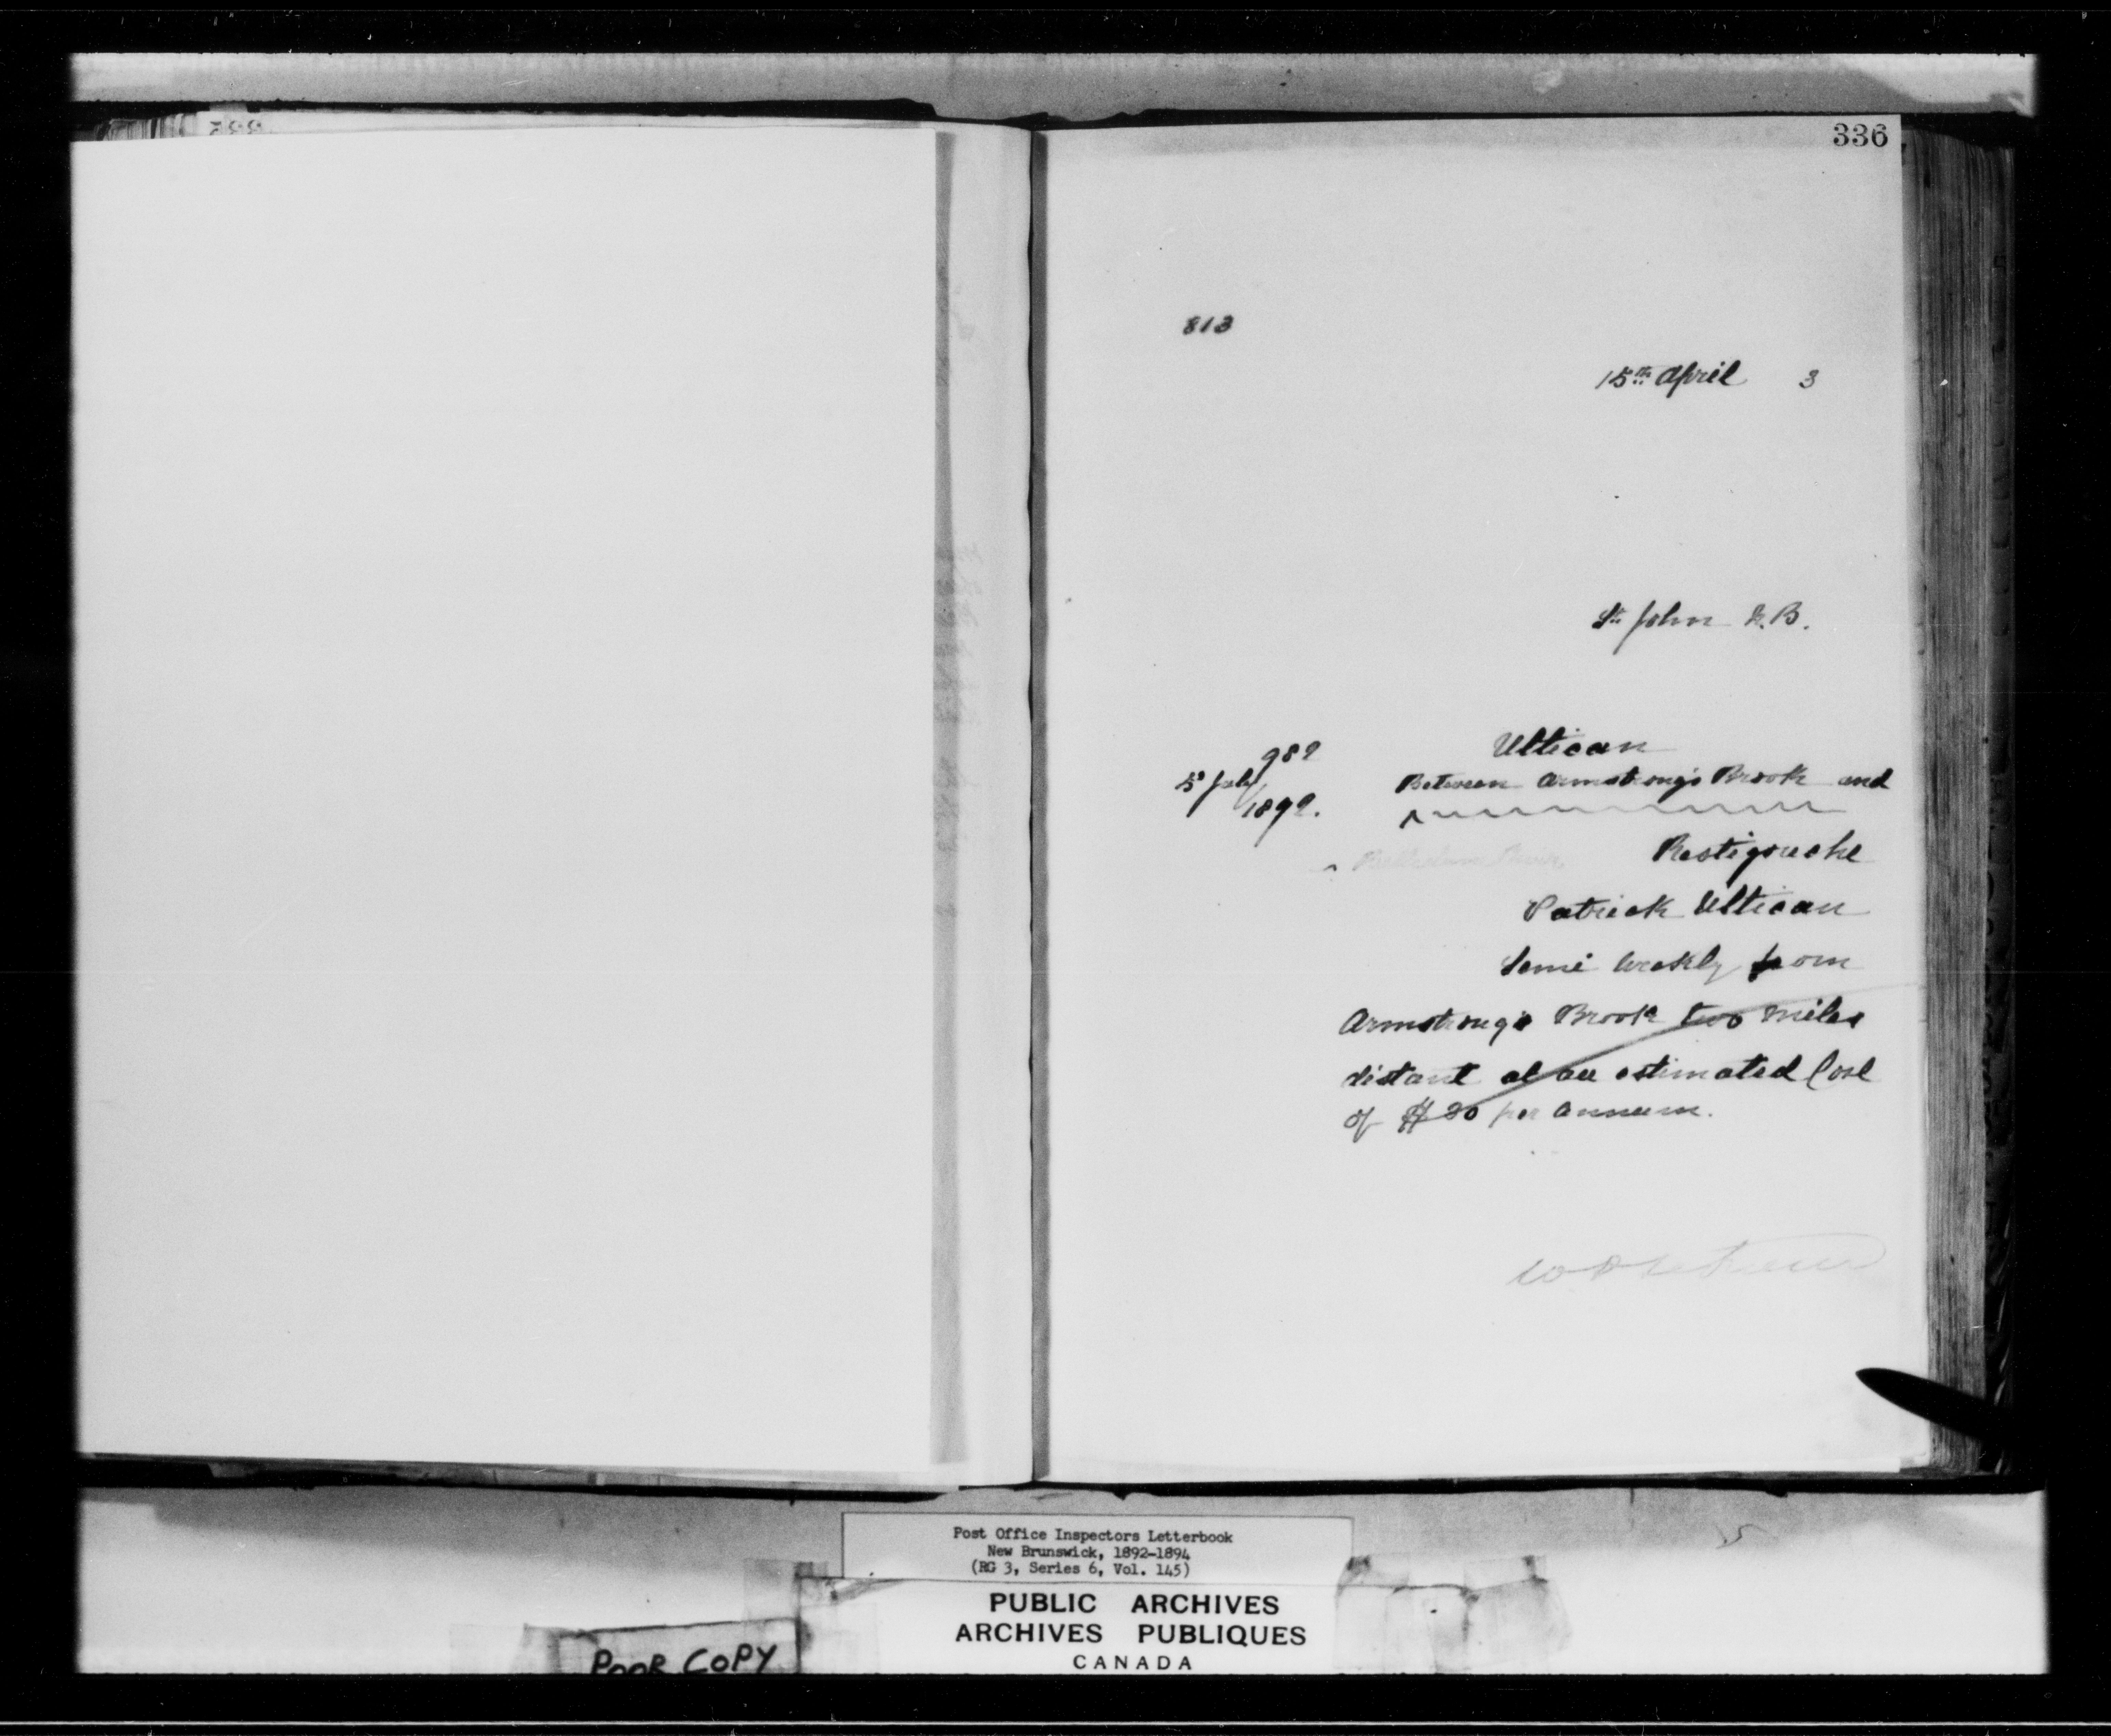 336
813
15th April 3
St John N.B.
982
5 July
1892.
Ultican
Between Armstrong's Brook and
Restigouche
Patrick Ultican
Semi Weekly from
Armstrong's Brook two miles
distant at an estimated Cost
of $20 per annum.
Post Office Inspectors Letterbook
New Brunswick, 1892-1894
(RG 3, Series 6, Vol. 145)
PUBLIC ARCHIVES
ARCHIVES PUBLIQUES
CANADA
POOR COPY